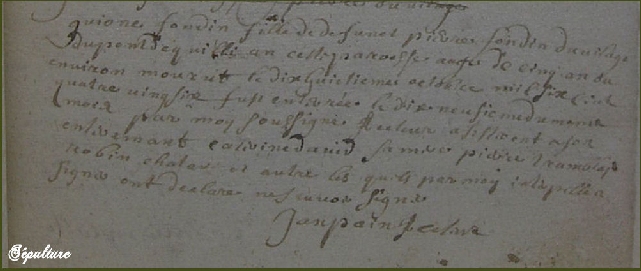 pierre du vilage
guione fondin fille de defunct pierre fondin du vilage
du pont de quille an ceste parroisse agee de cinq an ou
environ mourut le dix huictieme octobre mil six cent
quatre vingt six fust enterrée le dix neufieme du mesme
mois par moy soussigné Recteur assistent a son
enterrement caterine david sa mere pierre
robin et autre les quels par moy interpellés
signé ont declaré ne scavoir signé
Jan pain Recteur
Sépulture